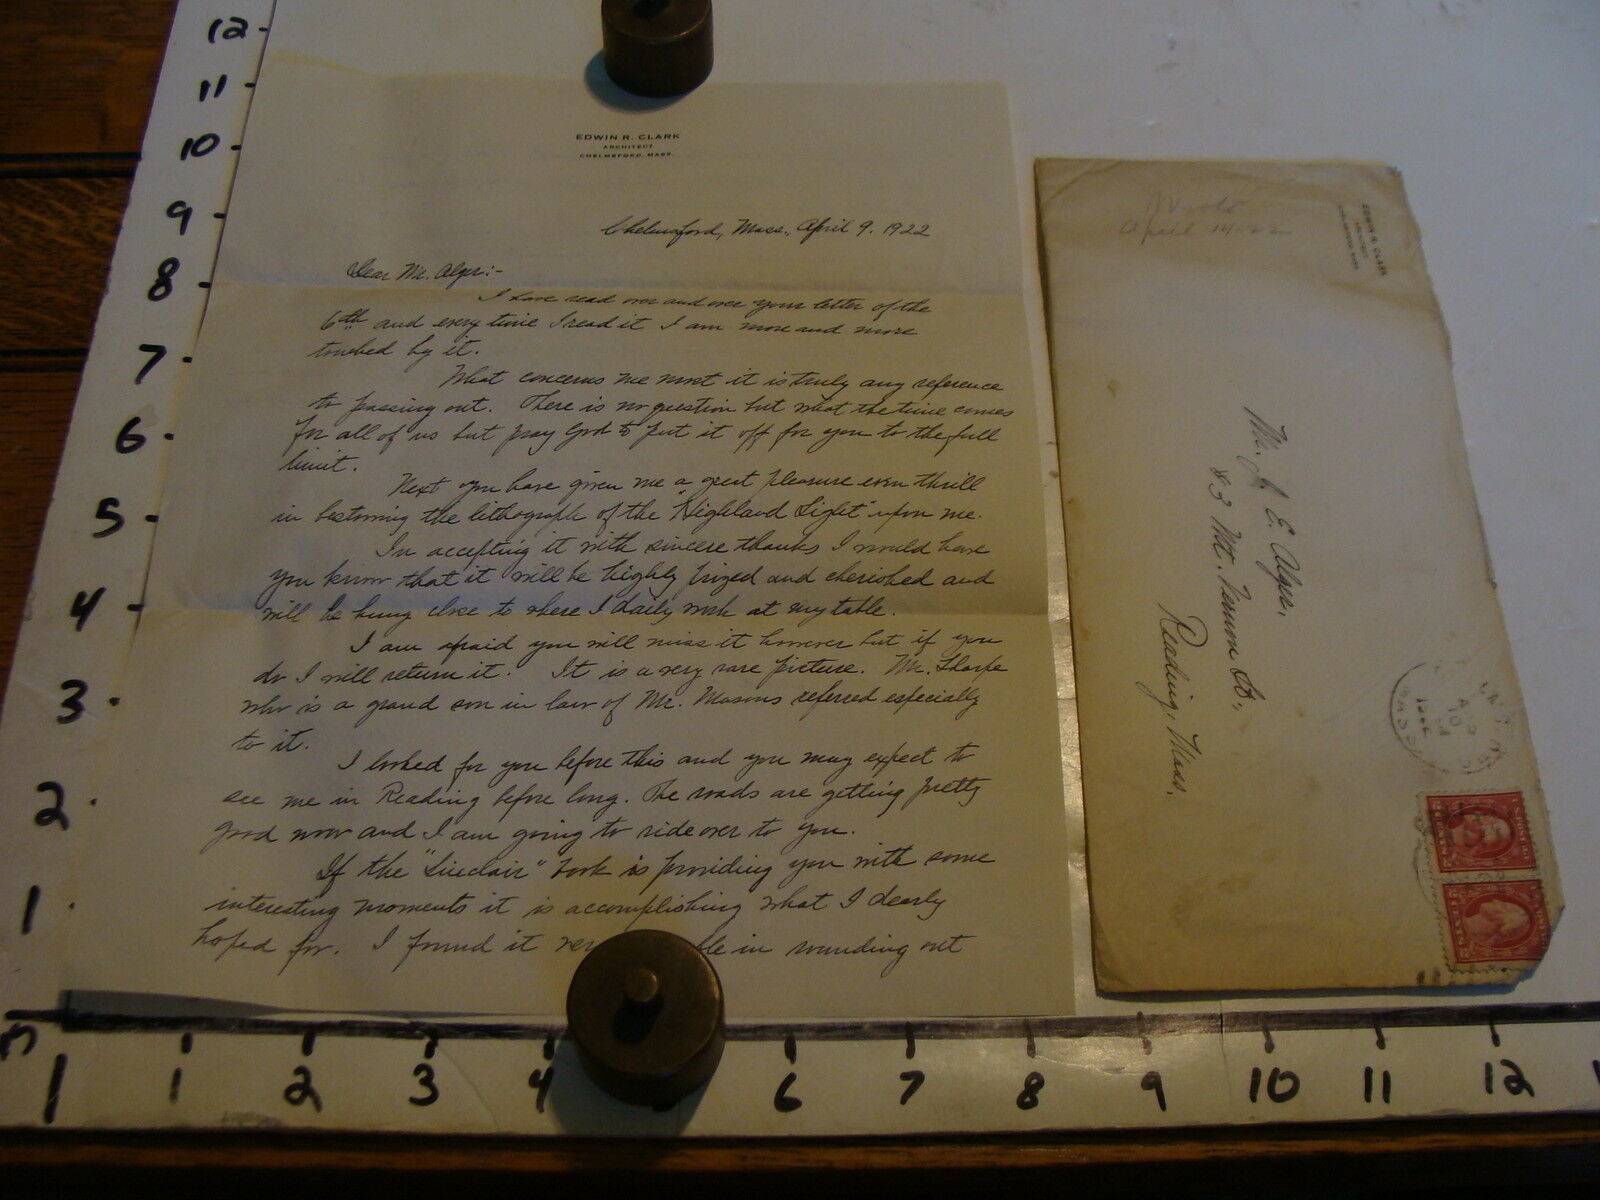 EDWIN R. CLARK
ARCHITECT
CHELMSFORD, MASS.
Chelmsford, Mass., April 9. 1922
Dear Mr. Alger:-
I have read over and over your letter of the
6th and every time I read it I am more and more
touched by it.
What concerns me most it is truly any reference
to passing out. There is no question but what the time comes
for all of us but pray God to put it off for you to the full
limit.
Next you have given me a great pleasure even thrill
in bestowing the lithograph of the "Highland Light" upon me.
In accepting it with sincere thanks I would have
you know that it will be highly prized and cherished and
will be hung close to where I daily work at my table.
I am afraid you will miss it however but if you
do I will return it. It is a very rare picture. Mr. Tharpe
who is a grand son in law of Mr. Masons referred especially
to it.
I looked for you before this and you may expect to
see me in Reading before long. The roads are getting pretty
good now and I am going to ride over to you.
If the "Sinclair" book is providing you with some
interesting moments it is accomplishing what I dearly
hoped for. I found it in rounding out
EDWIN R. CLARK
ARCHITECT
CHELMSFORD, MASS.
April 14-22
Mr. J. E. Alger,
83 Mt. Vernon St.,
Reading, Mass.
12
11
10
9
8
7
6
5
4
3
2
1
1
2
3
4
6
7
8
9
10
11
12